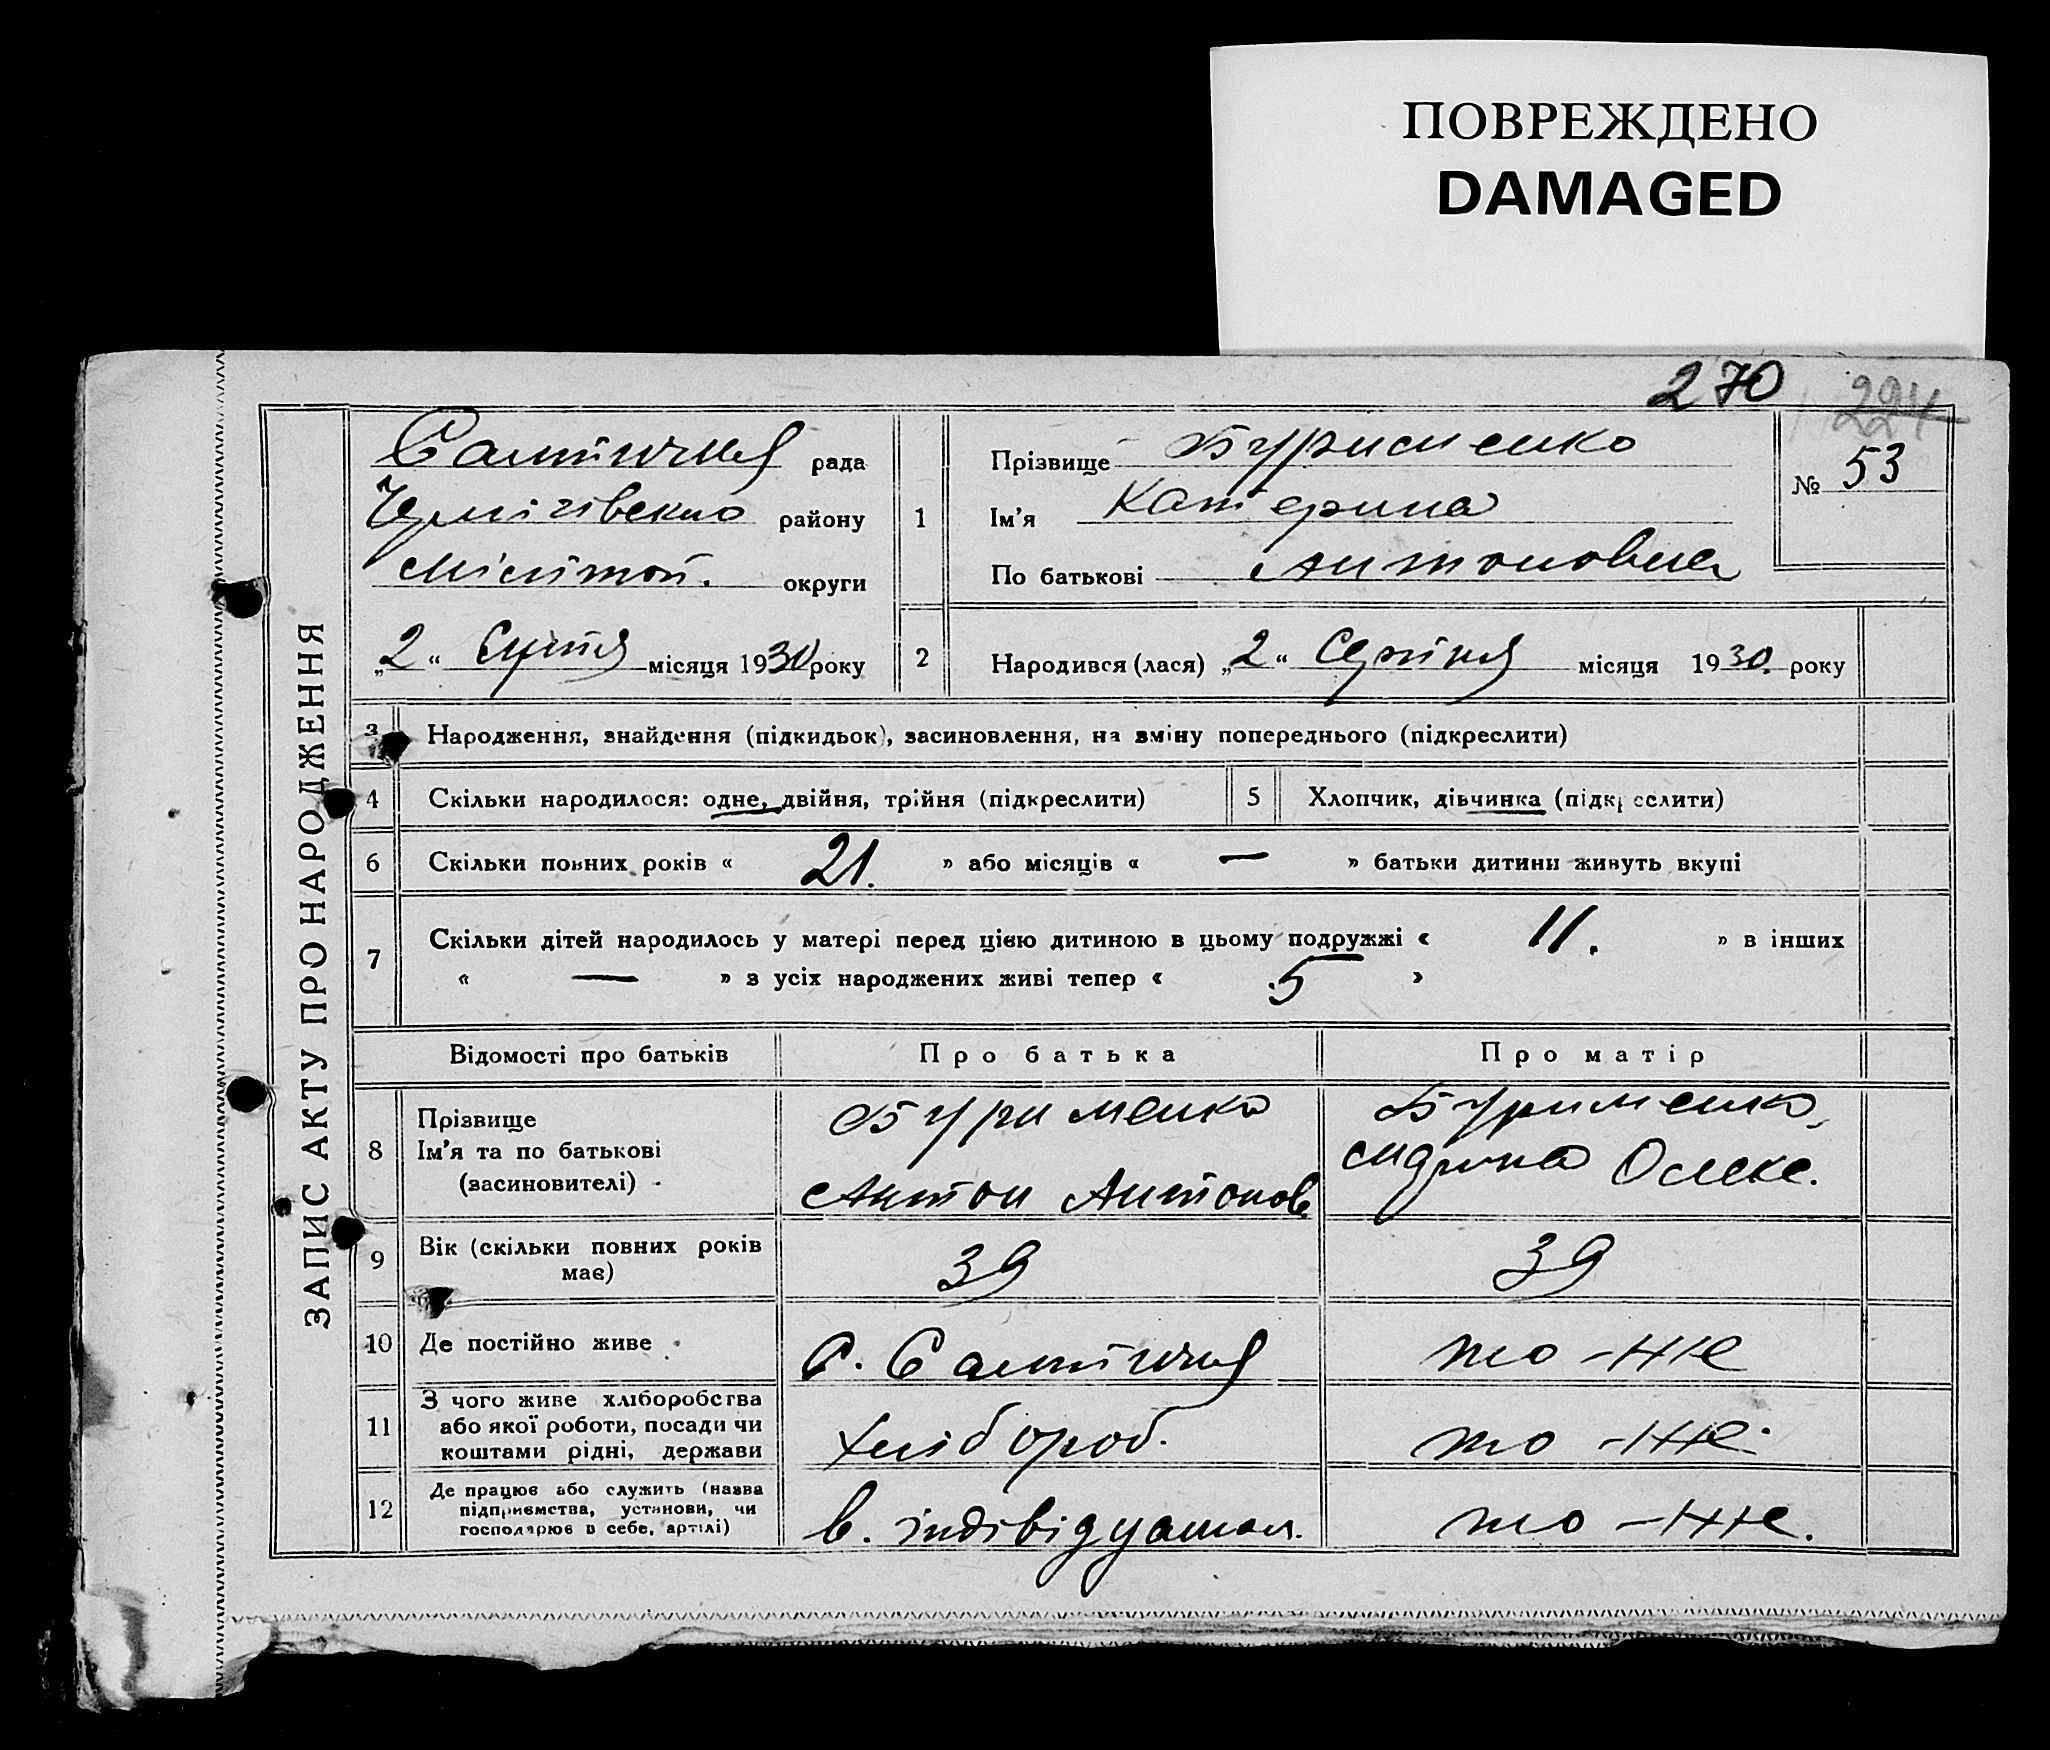 ПОВРЕЖДЕНО
DAMAGED
270 224
Салтичия рада
Чернігівського району
округи
„2“ Серпня місяця 1930 року
1
Прізвище Бурименко
Ім'я Катерина
По батькові Антоновна
№ 53
2
Народився (лася) „2“ Серпня місяця 1930. року
ЗАПИС АКТУ ПРО НАРОДЖЕННЯ
3 Народження, знайдення (підкидьок), засиновлення, на зміну попереднього (підкреслити)
4 Скільки народилося: одне, двійня, трійня (підкреслити)
5 Хлопчик, дівчинка (підкреслити)
6 Скільки повних років « 21. » або місяців « — » батьки дитини живуть вкупі
7 Скільки дітей народилось у матері перед цією дитиною в цьому подружжі « 11. » в інших
« — » з усіх народжених живі тепер « 5 »
Відомості про батьків Про батька Про матір
8 Прізвище
Ім'я та по батькові
(засиновителі)
Бурименко
Антон Антонов.
Бурименко
Олекс.
9 Вік (скільки повних років
має)
39 39
10 Де постійно живе с. Салтичия то-же
11 З чого живе хліборобства
або якої роботи, посади чи
коштами рідні, держави
хлібороб. то-же.
12 Де працює або служить (назва
підприємства, установи, чи
господарює в себе, артілі)
в. індівідуальн. то-же.